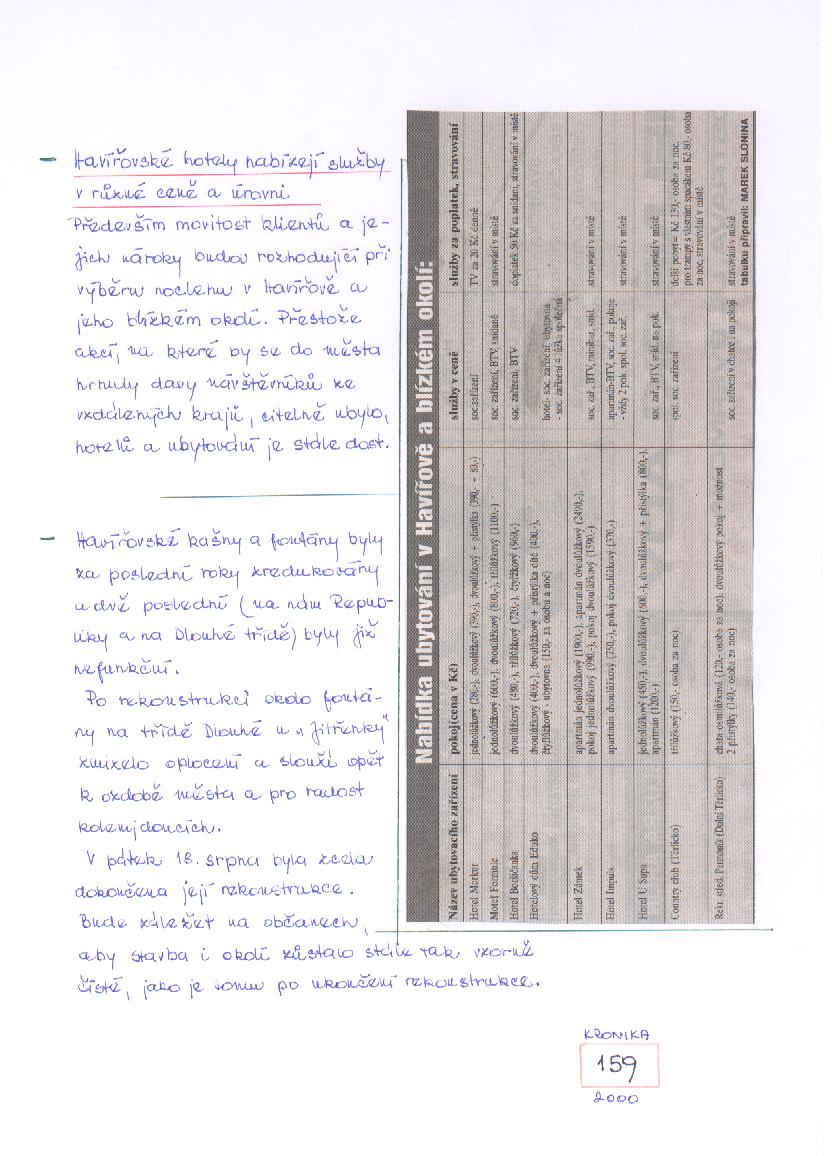 – Havířovské hotely nabízejí služby
v různé ceně a úrovni
Především movitost klientů a je-
jich nároky budou rozhodující při
výběru noclehu v Havířově a
jeho blízkém okolí. Přestože
akcí, na které by se do města
hrnuly davy návštěvníků ze
vzdálených krajů, citelně ubylo,
hotelů a ubytování je stále dost.
– Havířovské kašny a fontány byly
za poslední roky zredukovány
a dvě poslední (na nám. Repub-
liky a na Dlouhé třídě) byly již
nefunkční.
Po rekonstrukci okolo fontá-
ny na třídě Dlouhé u „Jitřenky"
zmizelo oplocení a slouží opět
k ozdobě města a pro radost
kolemjdoucích.
V pátek 18. srpna byla zcela
dokončena její rekonstrukce.
Bude záležet na občanech,
aby stavba i okolí zůstalo stále tak vzorně
čisté, jako je tomu po ukončení rekonstrukce.
Nabídka ubytování v Havířově a blízkém okolí:
Název ubytovacího zařízení pokoj(cena v Kč) služby v ceně služby za poplatek, stravování
Hotel Merkur jednolůžkový (280,-), dvoulůžkový (390,-), dvoulůžkový + přistýlka (390,- + 80,-) soc.zařízení TV za 20 Kč denně
Motel Formule jednolůžkový (600,-), dvoulůžkový (800,-), třílůžkový (1100,-) soc. zařízení, BTV, snídaně stravování v místě
Hotel Beskydská dvoulůžkový (480,-), třílůžkový (720,-), čtyřlůžkový (960,-) soc. zařízení, BTV doplatek 50 Kč za snídani, stravování v místě
Hotelový dům Eduko dvoulůžkový (400,-), dvoulůžkový + přistýlka dítě (400,-), hotel- soc. zařízení, ubytovna
čtyřlůžkový - ubytovna (150,- za osobu a noc) - soc. zařízení 4 lůžka společná
Hotel Zámek apartmán jednolůžkový (1960,-), apartmán dvoulůžkový (2490,-), soc. zař., BTV, minibar, sníd. stravování v místě
pokoj jednolůžkový (990,-), pokoj dvoulůžkový (1590,-)
Hotel Impuls apartmán dvoulůžkový (750,-), pokoj dvoulůžkový (370,-) apartmán-BTV, soc. zař., pokoje stravování v místě
- vždy 2 pok. spol. soc. zař.
Hotel U Supa jednolůžkový (450,-), dvoulůžkový (600,-), dvoulůžkový + přistýlka (800,-), soc. zař., BTV, sníd. na pok. stravování v místě
apartmán (1200,-)
Country club (Těrlicko) třílůžkový (150,- osoba za noc) spol. soc. zařízení další pobyt= Kč 130,- osoba za noc,
pro trampy s vlastním spacákem Kč 80,- osoba
za noc, stravování v místě
Rekr. střed. (Dolní Těrlicko) chata osmilůžková (120,- osoba za noc), dvoulůžkový pokoj + možnost soc. zařízení v chatce i na pokoji stravování v místě
2 přistýlky (140,- osoba za noc)
tabulku připravil: MAREK SLONINA
KRONIKA
159
2000